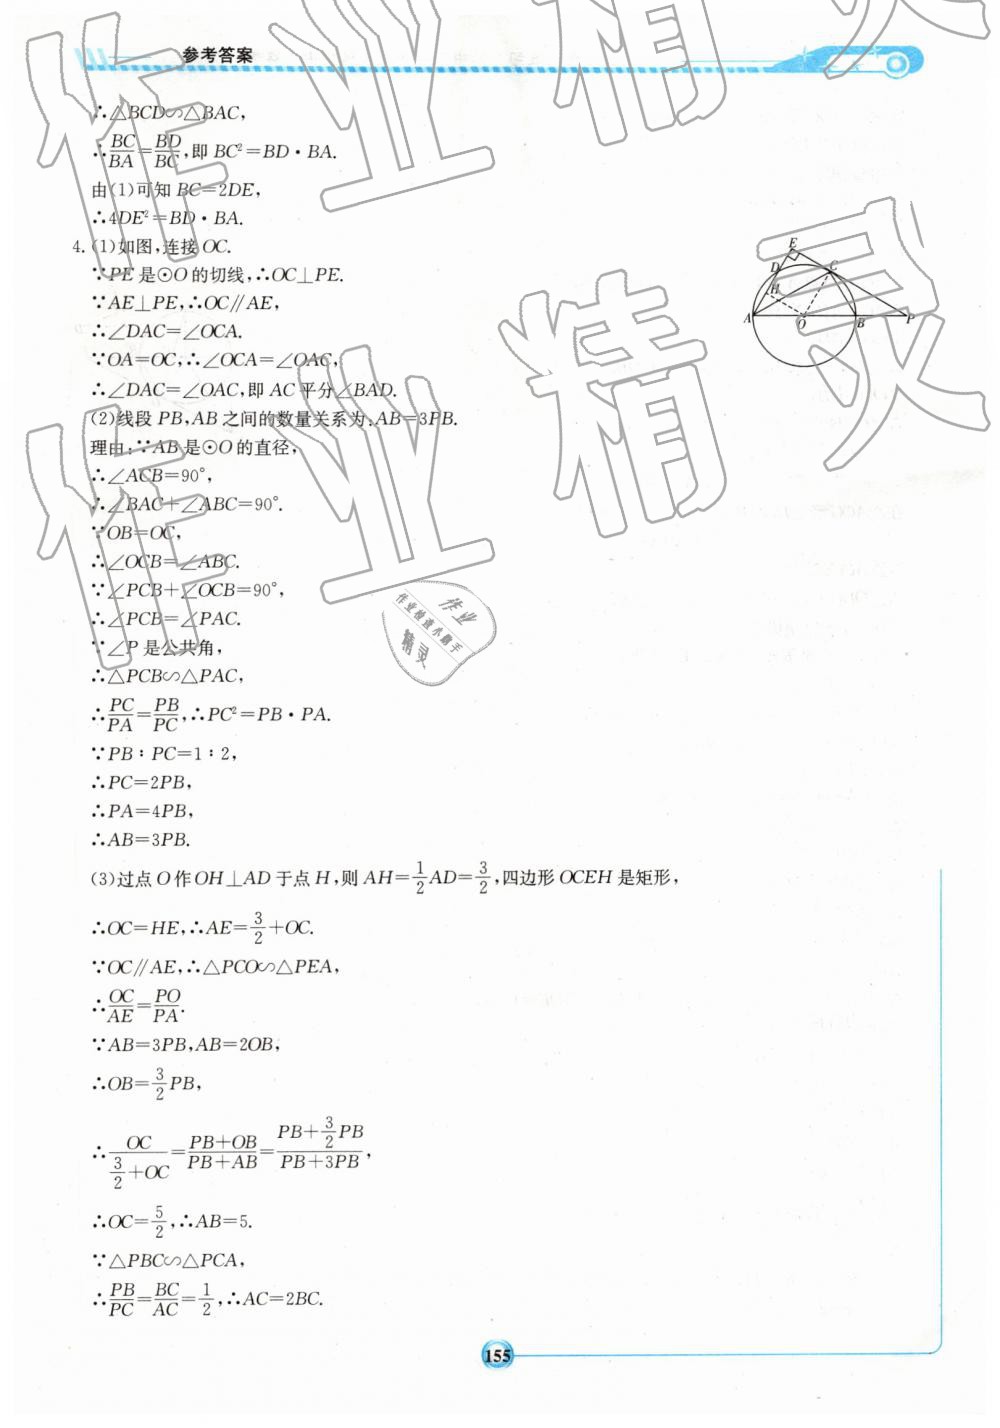 参考答案
∴△BCD∽△BAC,
∴BC/BA=BD/BC,即 BC²=BD·BA.
由(1)可知 BC=2DE,
∴4DE²=BD·BA.
4.(1)如图,连接 OC.
∵PE 是⊙O 的切线,∴OC⊥PE.
∵AE⊥PE,∴OC∥AE,
∴∠DAC=∠OCA.
∵OA=OC,∴∠OCA=∠OAC,
∴∠DAC=∠OAC,即 AC 平分∠BAD.
(2)线段 PB,AB 之间的数量关系为:AB=3PB.
理由:∵AB 是⊙O 的直径,
∴∠ACB=90°,
∴∠BAC+∠ABC=90°.
∵OB=OC,
∴∠OCB=∠ABC.
∵∠PCB+∠OCB=90°,
∴∠PCB=∠PAC.
∵∠P 是公共角,
∴△PCB∽△PAC,
∴PC/PA=PB/PC,∴PC²=PB·PA.
∵PB∶PC=1∶2,
∴PC=2PB,
∴PA=4PB,
∴AB=3PB.
(3)过点 O 作 OH⊥AD 于点 H,则 AH=1/2AD=3/2,四边形 OCEH 是矩形,
∴OC=HE,∴AE=3/2+OC.
∵OC∥AE,∴△PCO∽△PEA,
∴OC/AE=PO/PA.
∵AB=3PB,AB=2OB,
∴OB=3/2PB,
∴OC/(3/2+OC)=(PB+OB)/(PB+AB)=(PB+3/2PB)/(PB+3PB),
∴OC=5/2,∴AB=5.
∵△PBC∽△PCA,
∴PB/PC=BC/AC=1/2,∴AC=2BC.
E
D
C
H
A
O
B
P
155
作业精灵
作业精灵
作业
作业检查小助手
精灵